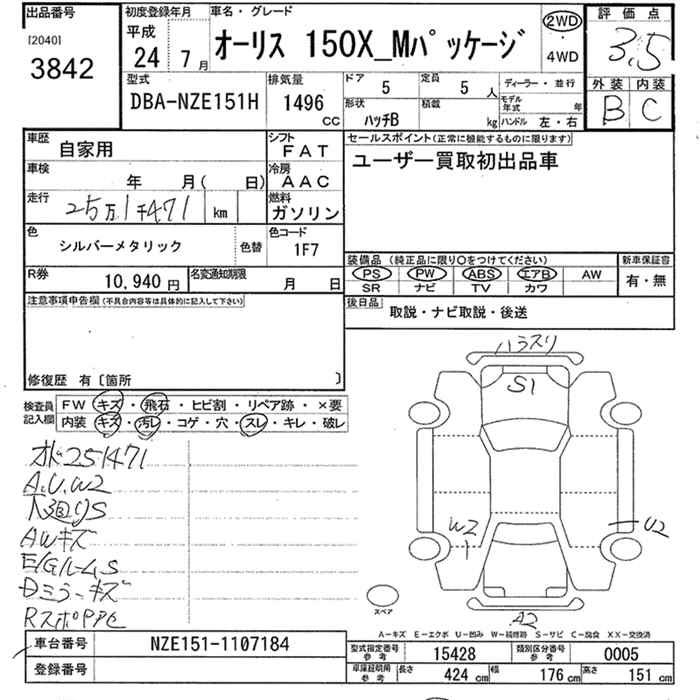 出品番号
[2040]
3842
初度登録年月
平成
24年 7月
車名・グレード
オーリス 150X_Mパッケージ
2WD
・
4WD
評価点
3.5
外装 内装
B C
型式
DBA-NZE151H
排気量
1496
CC
ドア
5
定員
5人
形状
ハッチB
積載
kg
ディーラー・並行
モデル年式 年
ハンドル 左・右
車歴
自家用
シフト
FAT
車検
年 月( 日)
冷房
AAC
走行
25万1千471 km
燃料
ガソリン
色
シルバーメタリック
色替
色コード
1F7
R券
10,940円
名変通知期限
月 日
セールスポイント(正常に機能するものに限ります)
ユーザー買取初出品車
装備品 (純正品に限り○をつけてください)
PS PW ABS エアB AW
SR ナビ TV カワ
新車保証書
有・無
後日品
取説・ナビ取説・後送
注意事項申告欄(不具合内容等は具体的に記入して下さい)
修復歴 有〔箇所 〕
検査員記入欄
FW キズ・飛石・ヒビ割・リペア跡・×要
内装 キズ・汚レ・コゲ・穴・スレ・キレ・破レ
オド251471
A.U.W2
AWキズ
E/GルームS
Dミラーキズ
ハラスリ
S1
W2
U2
A2
スペア
A-キズ E-エクボ U-凹み W-補修跡 S-サビ C-腐食 XX-交換済
車台番号
NZE151-1107184
登録番号
型式指定番号
参考
15428
類別区分番号
参考
0005
車庫証明用
参考
長さ 424cm 幅 176cm 高さ 151cm